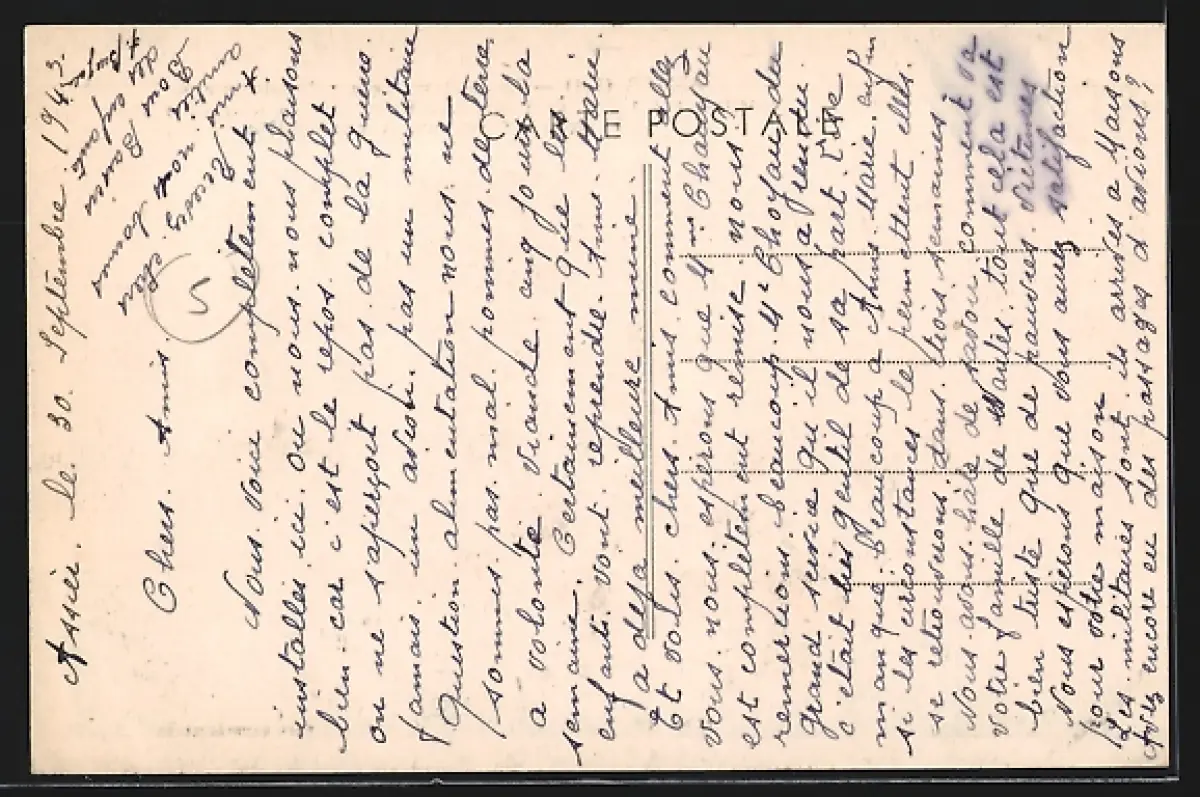 Assier. le. 30. Septembre. 1943.
Chers. Amis.
Nous. voici complètement
installés ici. ou nous. nous plaisons
bien. car c'est le repos. complet.
on ne s'aperçoit pas. de la guerre.
Jamais un avion. pas un militaire
Question. alimentation nous. ne
sommes. pas. mal. pommes. de terre.
a volonté viande cinq jours la
semaine. Certainement que les
enfants. vont. reprendre. Anne. Marie.
a deja meilleure mine.
Et vous. chers. Amis. comment allez
vous. nous. espérons que Mme Chauveau
est complètement remise nous
remercions. beaucoup. Mr du
grand service qu'il nous. a rendu
c'était très gentil de sa part. Il
manque beaucoup a Anne. Marie. enfin
si les circonstances le permettent elles.
se retrouverons. dans. trois. semaines
Nous. avons. hâte de savoir. comment va
votre famille de Nantes. tout cela est
bien triste que de pauvres. victimes
Nous espérons que vous avez satisfaction
pour votre maison
Les. militaires sont. ils arrivés a
Avez encore eu des passages d'avions?
CARTE POSTALE
5
Amis. Recevez. chers
amitiés nos bonnes
Pour
du enfants